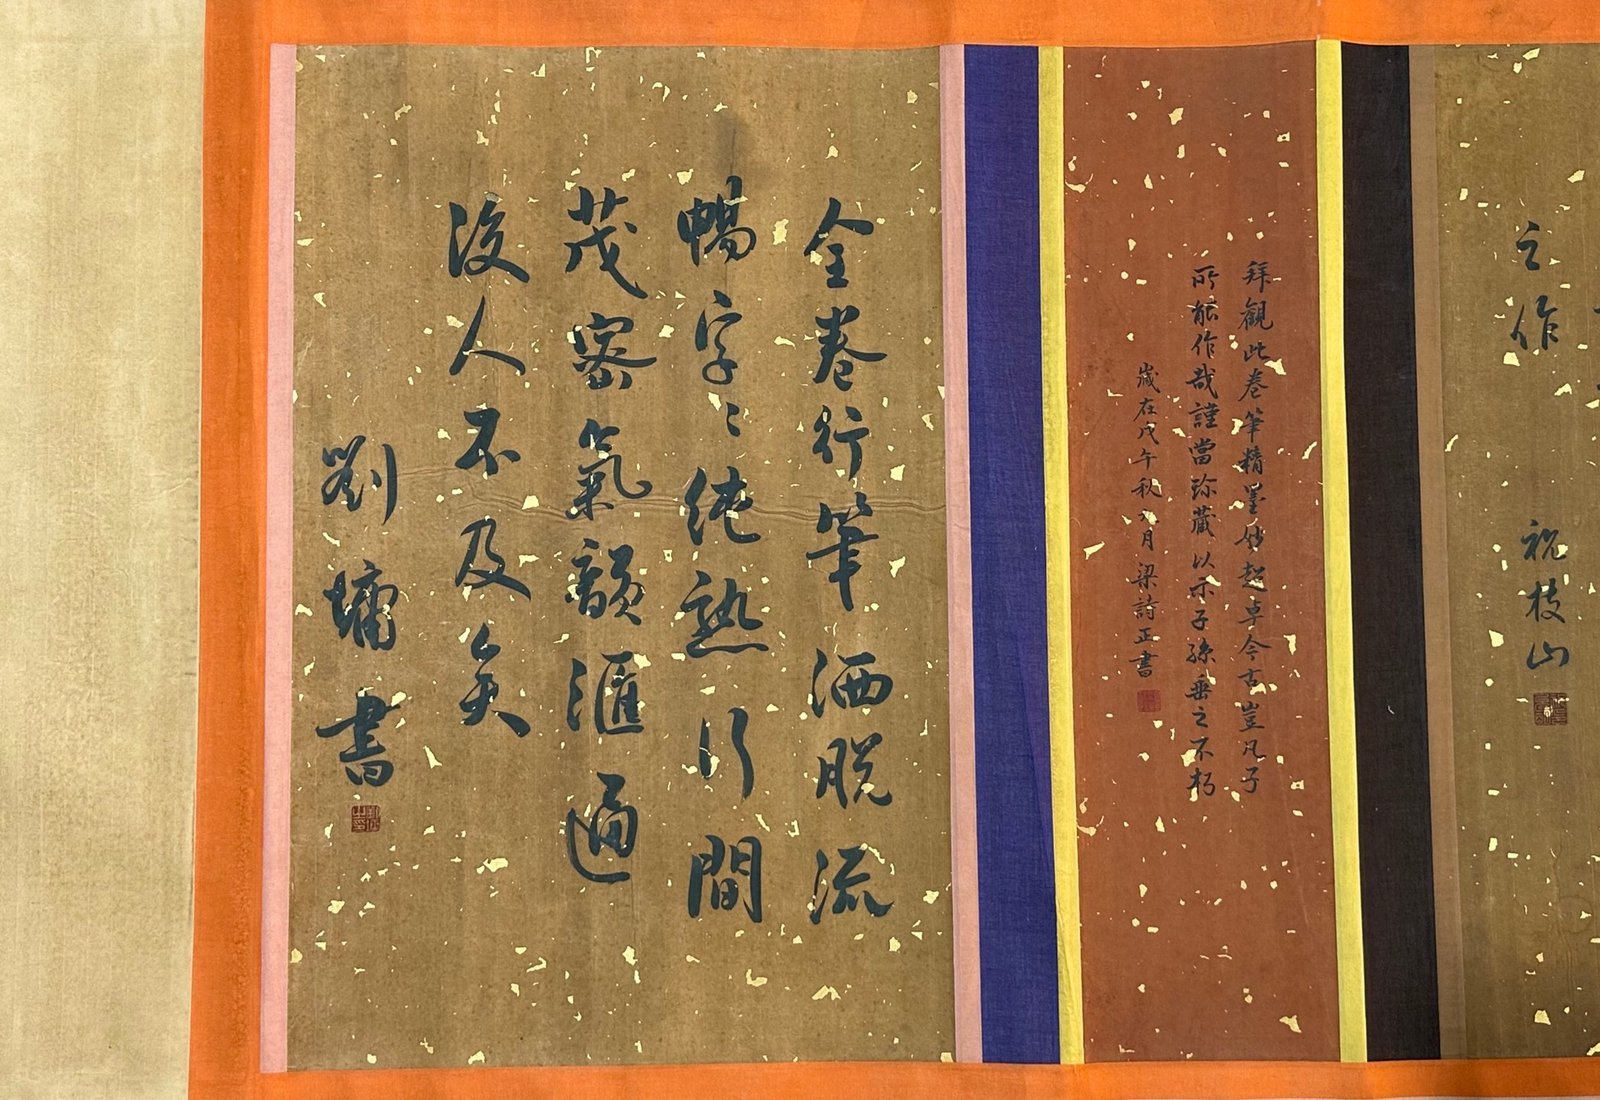 之作
祝枝山
拜觀此卷筆精墨妙超卓今古豈凡子
所能作哉謹當珎藏以示子孫垂之不朽
歲在戊午秋八月梁詩正書
全卷行筆洒脱流
暢字〻純熟行間
茂密氣韻滙通
後人不及矣
劉墉書